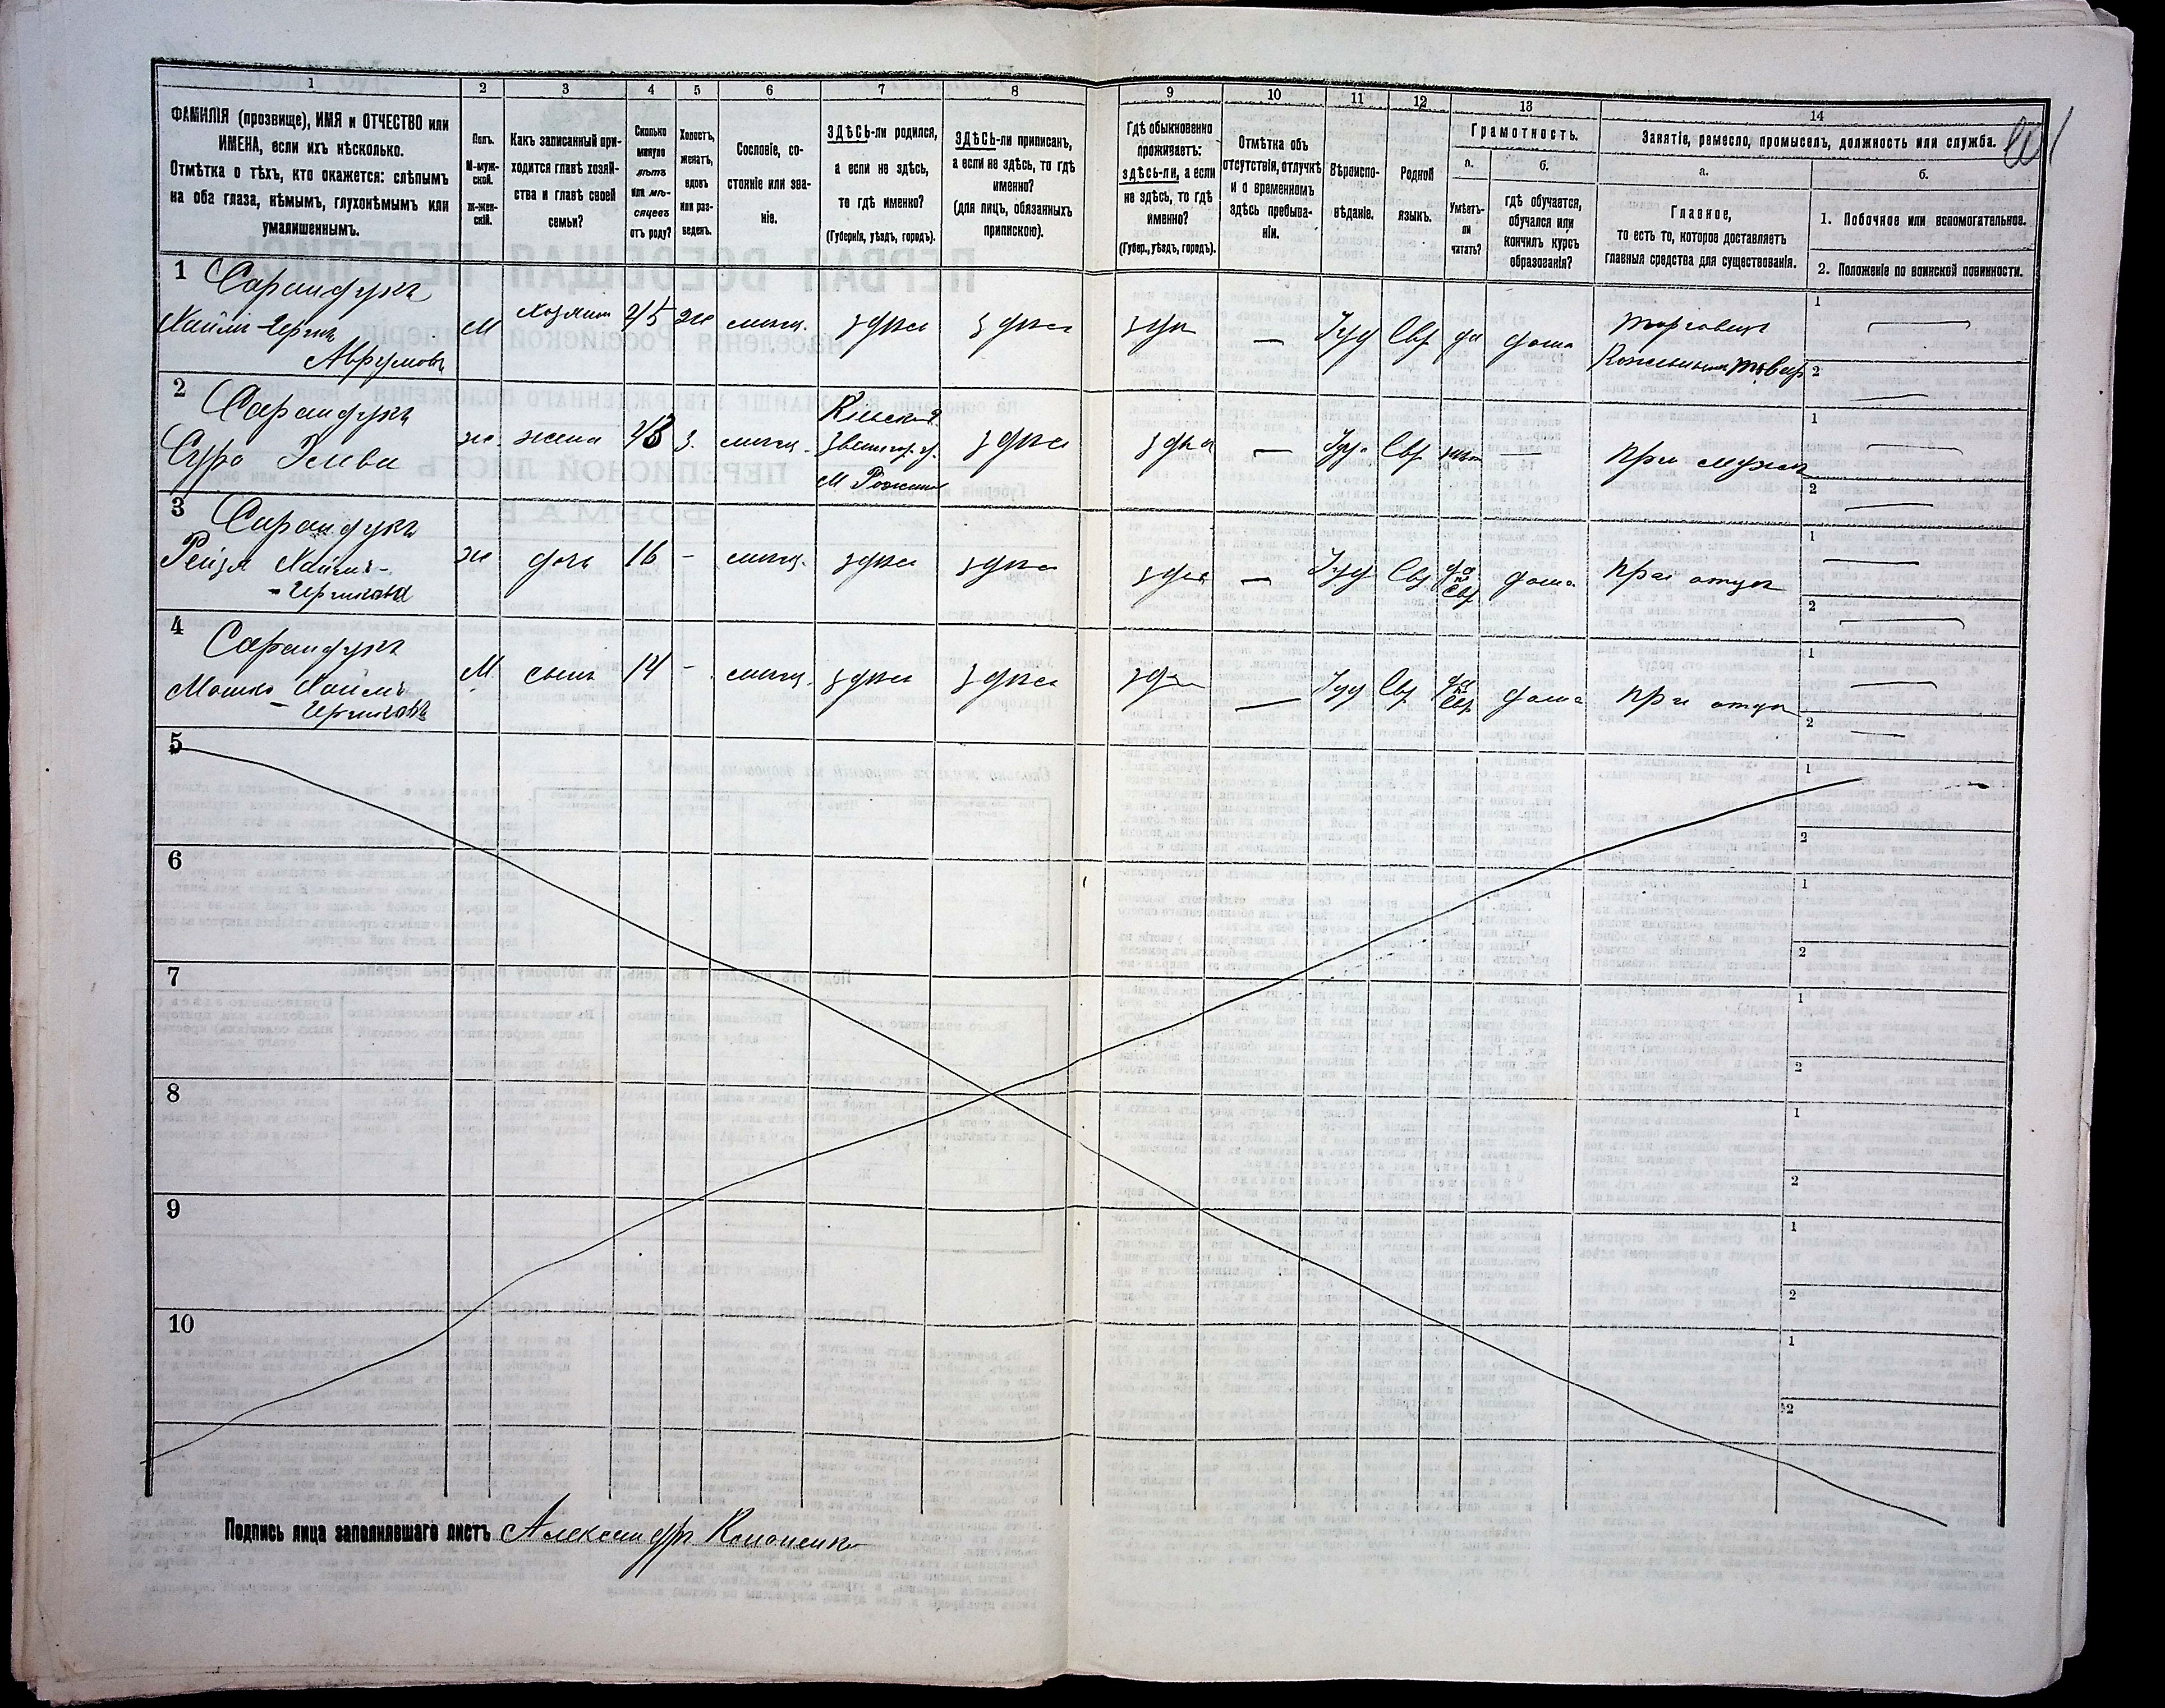 1 2 3 4 5 6 7 8 9 10 11 12 13 14
ФАМИЛІЯ (прозвище), ИМЯ и ОТЧЕСТВО или
ИМЕНА, если ихъ нѣсколько.
Отмѣтка о тѣхъ, кто окажется: слѣпымъ
на оба глаза, нѣмымъ, глухонѣмымъ или
умалишеннымъ.
Полъ.
М-муж-
ской.
ж-жен-
скій.
Какъ записанный при-
ходится главѣ хозяй-
ства и главѣ своей
семьи?
Сколько
минуло
лѣтъ
или мѣ-
сяцевъ
отъ роду?
Холостъ,
женатъ,
вдовъ
или раз-
веденъ.
Сословіе, со-
стояніе или зва-
ніе.
ЗДѢСЬ-ли родился,
а если не здѣсь,
то гдѣ именно?
(Губернія, уѣздъ, городъ).
ЗДѢСЬ-ли приписанъ,
а если не здѣсь, то гдѣ
именно?
(для лицъ, обязанныхъ
припискою).
Гдѣ обыкновенно
проживаетъ:
здѣсь-ли, а если
не здѣсь, то гдѣ
именно?
(Губер., уѣздъ, городъ).
Отмѣтка объ
отсутствіи, отлучкѣ
и о временномъ
здѣсь пребыва-
ніи.
Вѣроиспо-
вѣданіе.
Родной
языкъ.
Грамотность.
а.
Умѣетъ-
ли
читать?
б.
гдѣ обучается,
обучался или
кончилъ курсъ
образованія?
Занятіе, ремесло, промыселъ, должность или служба.
а.
Главное,
то есть то, которое доставляетъ
главныя средства для существованія.
б.
1. Побочное или вспомогательное.
2. Положеніе по воинской повинности.
1 Сарандукъ
Хаймъ-Гершъ
Аврумовъ
М хозяинъ 45 ж мѣщ. здѣсь здѣсь здѣсь — Іуд Евр да дома торговецъ
1 —
2 —
2 Сарандукъ
Сура
ж. жена з. мѣщ. Кіевской
Звенигор. у.
м. здѣсь здѣсь — Іуд. Евр нѣтъ — при мужѣ
1 —
2 —
3 Сарандукъ
Рейзя Хаимъ-
-Гершковна
ж дочь 16 - мѣщ. здѣсь здѣсь здѣсь — Іуд Евр да
по
Евр дома при отцѣ
1 —
2 —
4 Сарандукъ
Мошко Хаимъ
-Гершковъ
М. сынъ 14 - мѣщ. здѣсь здѣсь здѣсь — Іуд Евр да
по
Евр дома при отцѣ
1 —
2 —
5
1
2
6
1
2
7
1
2
8
1
2
9
1
2
10
1
2
Подпись лица заполнявшаго листъ Александръ Кононенко